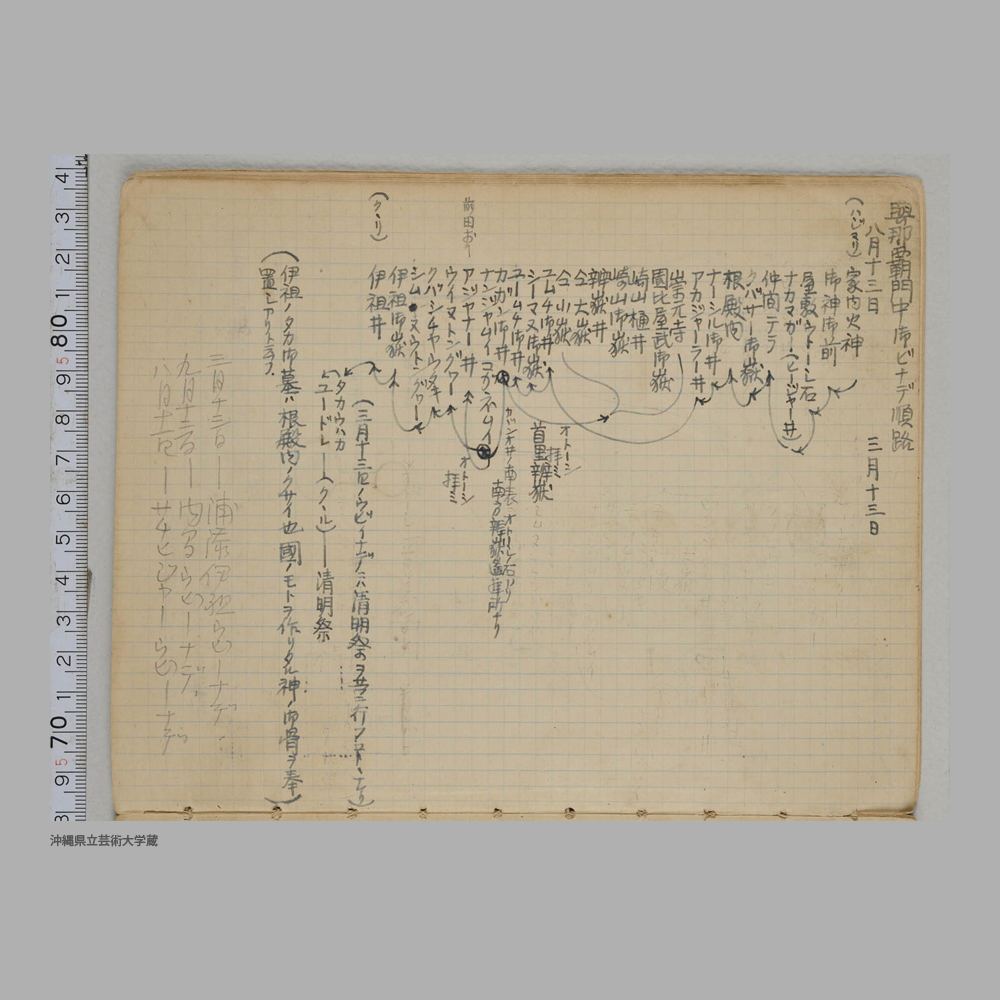 與那覇門中御ビナデ順路
八月十三日 三月十三日
(ハジマリ) 家内火神
御神御前
屋敷ウトーシ石
ナカマガー(ヒージャー井)
仲間テラ
クバサー御嶽
根殿内
ナーシル御井
アカジャーラー井
崇元寺
園比屋武御嶽
崎山樋井
崎山御嶽
辨嶽井
仝大嶽
仝小嶽
ユムチ御井
シーマヌ御嶽
ユームチ御井
カガン御井
ナンジャムイコガネムイ
アジャナー井
前田おり
ウイヌトングヮー
クバシチャウタキ
シム・ヌウトングヮー
伊祖御嶽
(クーリ) 伊祖井
オトーシ
拝ミ
首里辨嶽
カガン御井ノ南表ニオトーシノ石アリ
南方辨嶽遙拝所ナリ
オトーシ
拝ミ
(三月十三日ノウビィナデハ清明祭ヲ共ニ行フコトナリ)
タカウハカ
ユードレ―(クール)―清明祭
(伊祖ノタカ御墓ハ根殿内ノクサイ也 國ノモトヲ作リタル神ノ御骨ヲ奉
置シアリト云フ)
三月十三日―浦添伊祖うびーナデー
九月十三日―内間うびーナデ
八月十三日―サチヒジャーうびーナデ
沖縄県立芸術大学蔵